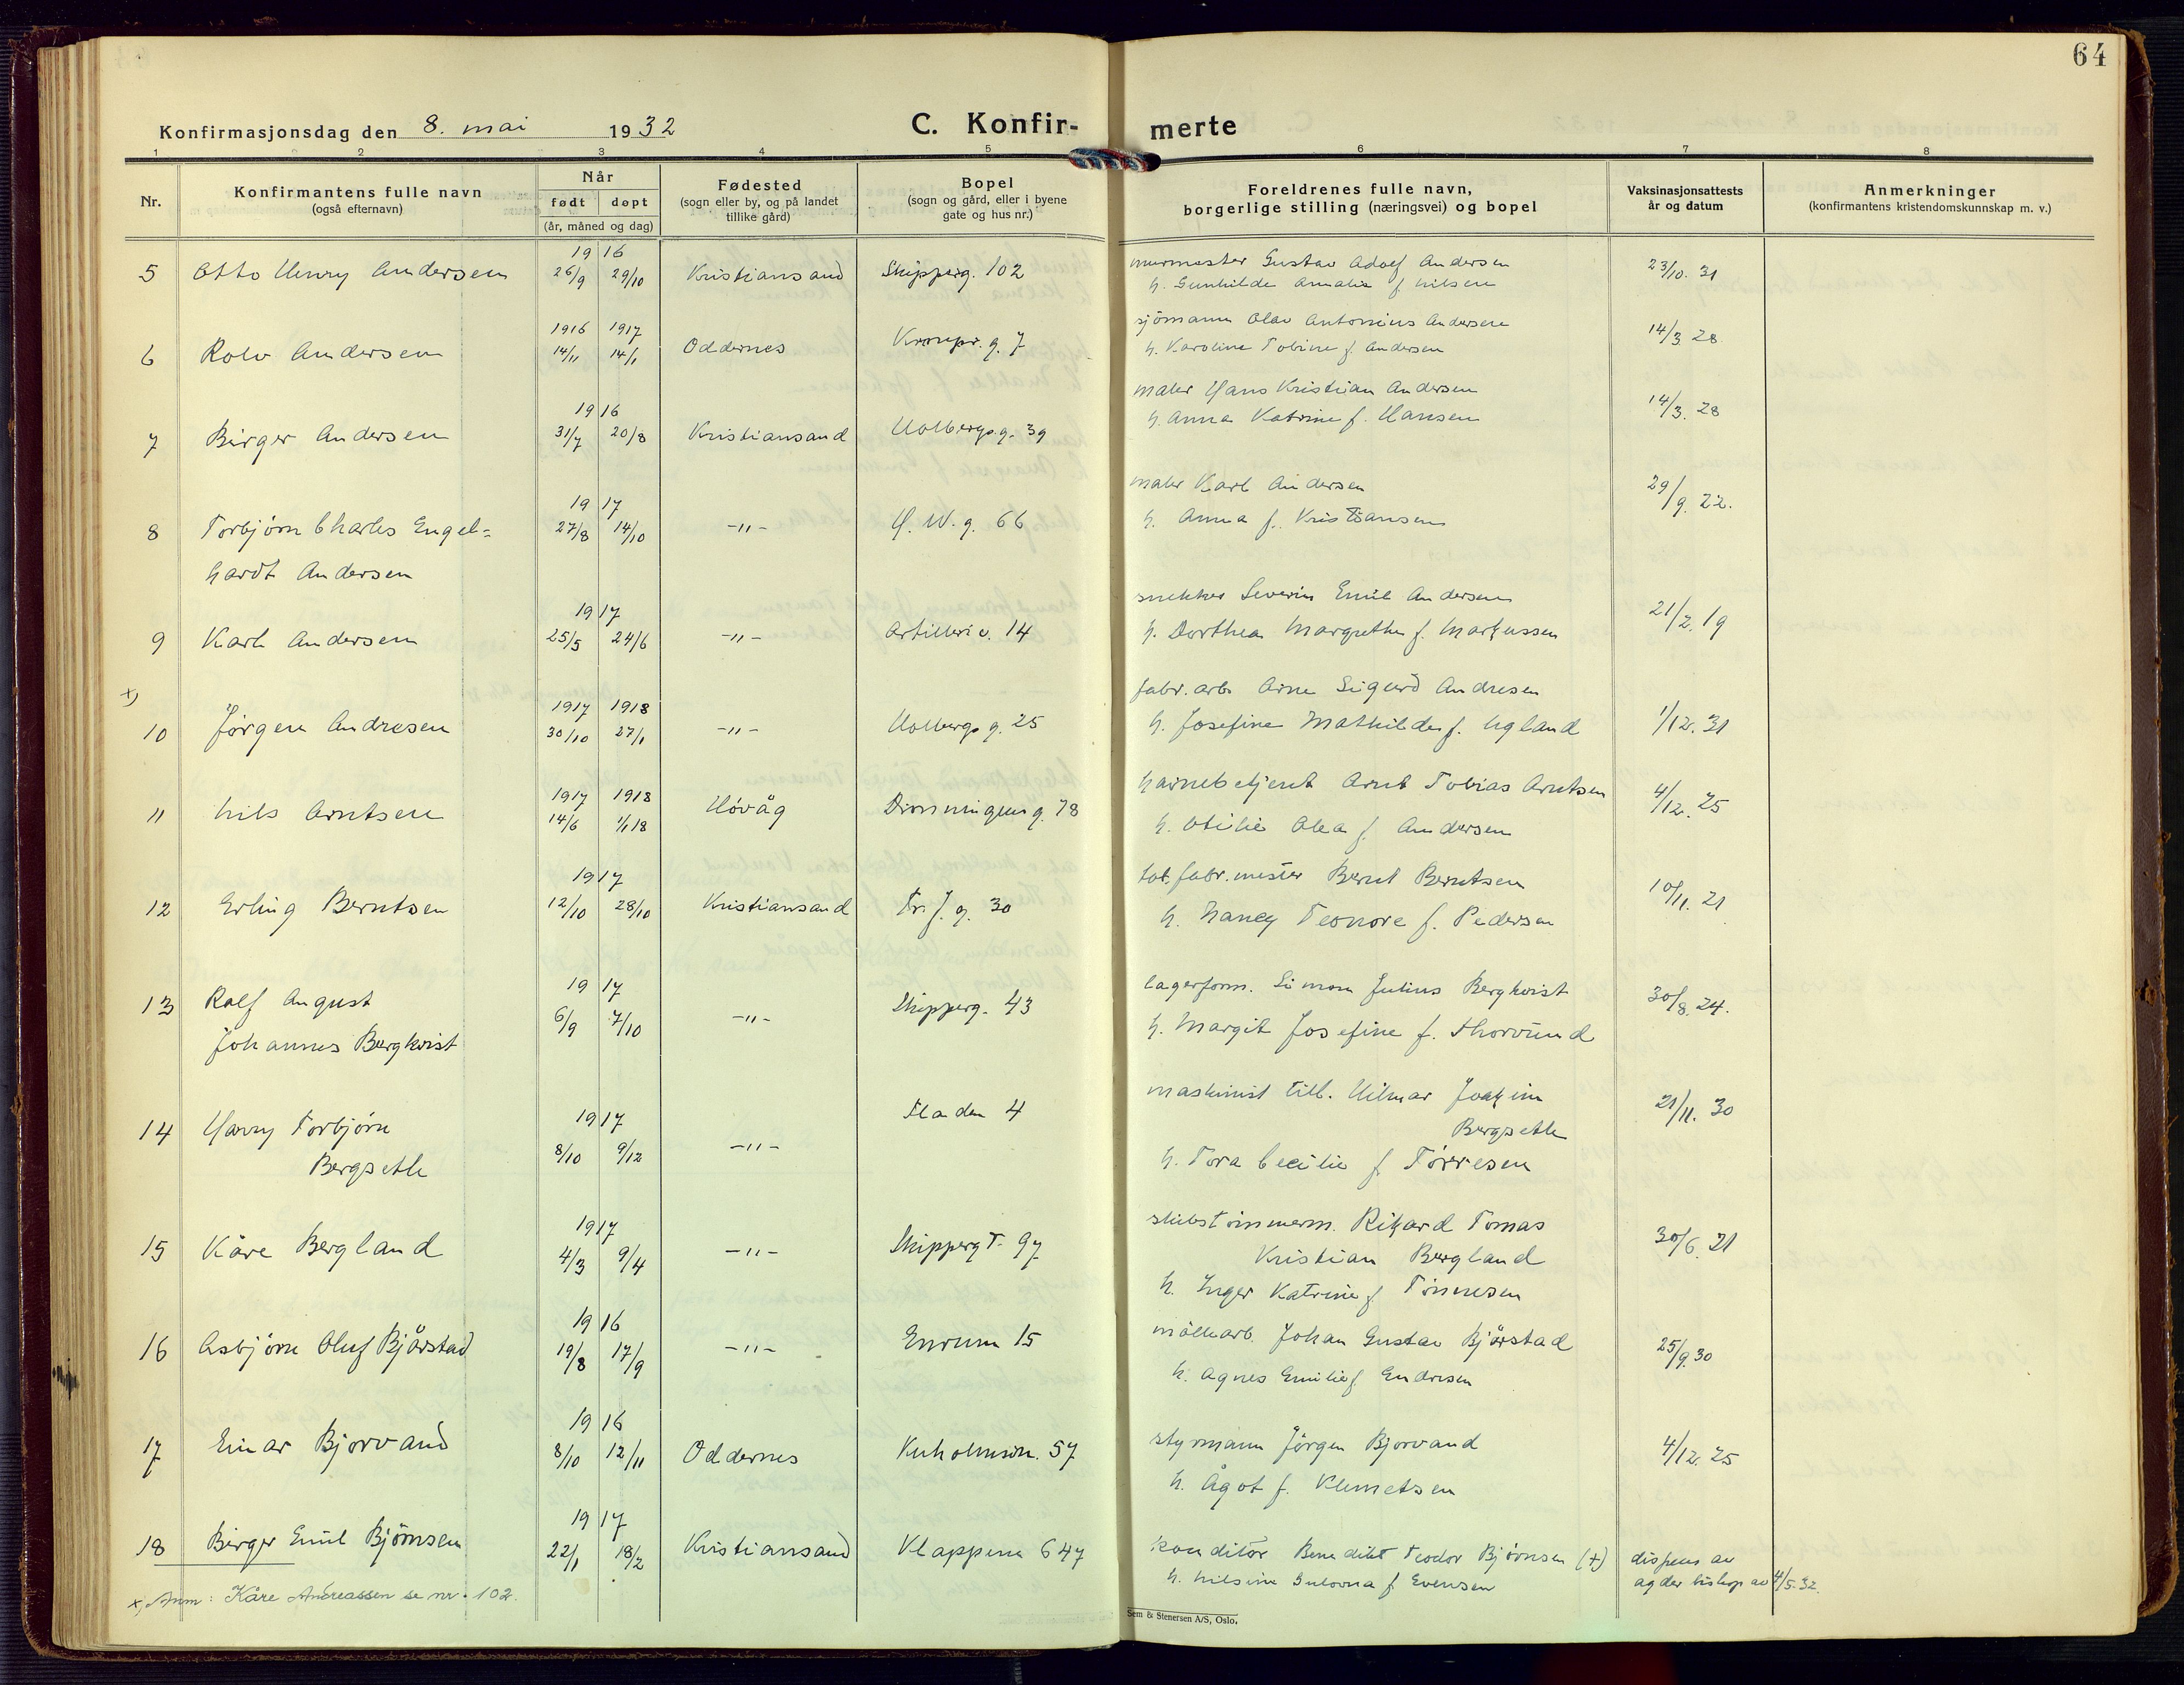 64
Konfirmasjonsdag den 8. mai 1932
C. Konfir-
merte
1 2 3 4 5 6 7 8
Nr.
Konfirmantens fulle navn
(også efternavn)
Når
født døpt
(år, måned og dag)
Fødested
(sogn eller by, og på landet
tillike gård)
Bopel
(sogn og gård, eller i byene
gate og hus nr.)
Foreldrenes fulle navn,
borgerlige stilling (næringsvei) og bopel
Vaksinasjonsattests
år og datum
Anmerkninger
(konfirmantens kristendomskunnskap m. v.)
19 16
5 Otto Henry Andersen 26/9 29/10 Kristiansand Skipperg. 102 murmester Gustav Adolf Andersen 23/10. 31
h. Gunhilde Amalie f. Nilsen
1916 1917
6 Rolv Andersen 14/11 14/1 Oddernes Kronpr. g. 7 sjömann Olav Antonius Andersen 14/3 28
h. Karoline Tobine f. Andersen
19 16
7 Birger Andersen 31/7 20/8 Kristiansand Holbergs g. 39 maler Hans Kristian Andersen 14/3. 28
h. Anna Katrine f. Hansen
19 17
8 Torbjørn Charles Engel= 27/8 14/10 -"- H. W. g. 66 maler Karl Andersen 29/9. 22.
hardt Andersen
h. Anna f. Kristiansen
19 17
9 Karl Andersen 25/5 24/6 -"- Artilleri v. 14 snekker Severin Emil Andersen 21/2. 19
h. Dorthea Margrethe f. Markussen
x)
1917 1918
10 Jørgen Andresen 30/10 27/1 -"- Holbergs g. 25 fabr. arb. Arne Sigurd Andresen 1/12. 31
h. Josefine Mathilde f. Ugland
1917 1918
11 Nils Arntsen 14/6 1/1 18 Høvåg Dronningens g. 78 havnebetjent Arnt Tobias Arntsen 4/12. 25
h. Otilie Olea f. Andersen
19 17
12 Erling Berntsen 12/10 28/10 Kristiansand Tr. f. g. 30 tob. fabr. mester Bernt Berntsen 10/11. 21
h. Nancy Teonore f. Pedersen
19 17
13 Rolf August 6/9 7/10 -"- Skipperg. 43 lagerform. Simon Julius Bergkvist 30/8. 24.
Johannes Bergkvist
h. Margit Josefine f.
19 17
14 Harry Torbjörn 8/10 9/12 -"- Fladen 4 maskinist till. Hilmar Joakim 21/11. 30
Bergseth
Bergseth
h. Tora Cecilie f. Törresen
19 17
15 Kåre Bergland 4/3 9/4 -"- Skippergt. 97 skibstömmerm. Rikard Tomas 30/6. 21
Kristian Bergland
h. Inger Katrine f. Tönnesen
19 16
16 Asbjørn Oluf Bjårstad 19/8 17/9 -"- Enrum 15 mölllearb. Johan Gustav Bjårstad 25/9. 30
h. Agnes Emilie f. Endresen
19 16
17 Einar Bjorvand 8/10 12/11 Oddernes Kuholmsv. 57 styrmann Jörgen Bjorvand 4/12. 25
h. Ågot f. Klemetsen
19 17
18 Birger Emil Bjørnsen 22/1 18/2 Kristiansand Klappene 647 konditor Benedikt Teodor Bjørnsen (+) dispens av
h. Nilsine f. Evensen
agder biskop av 4/5. 32.
x) Anm: Kåre Andreassen se nr. 102.
Sem & Stenersen A/S, Oslo.